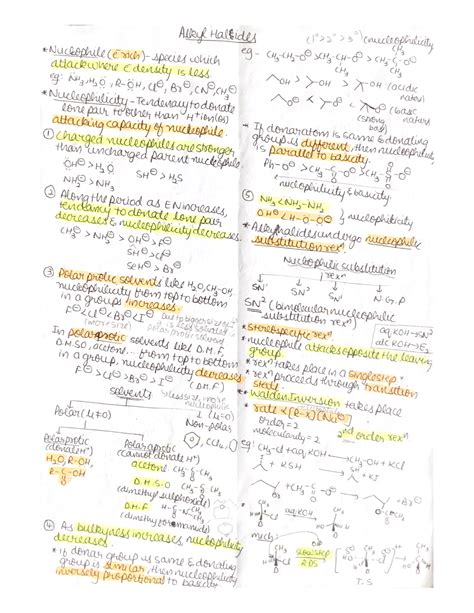 Alkyl Halides
* Nucleophile (E rich) - species which
attack where E density is less.
eg: NH3, H2O, R-OH, Cl⊖, Br⊖, CN⊖, CH3⊖
* Nucleophilicity - Tendency to donate
lone pair to other than H+ ion (or)
attacking capacity of nucleophile.
① Charged nucleophiles are stronger
than uncharged parent nucleophile.
OH⊖ > H2O SH⊖ > H2S
NH2⊖ > NH3
② Along the period as EN increases,
tendency to donate lone pair
decreases & nucleophilicity decreases.
CH3⊖ > NH2⊖ > OH⊖ > F⊖
SH⊖ > Cl⊖
SeH⊖ > Br⊖
③ Polar protic solvents like H2O, CH3-OH,
nucleophilicity from top to bottom
in a group increases.
F⊖ < Cl⊖ < Br⊖ < I⊖
(more size)
In polar aprotic solvents like D.M.F,
D.M.SO, acetone.... from top to bottom
in a group, nucleophilicity decreases
F⊖ > Cl⊖ > Br⊖ > I⊖ (D.M.F)
solvents
Polar (μ≠0)
(μ=0)
Non-polar
CCl4
Polar protic
(donate H+)
H2O, R-OH,
R-C-OH
O
Polar aprotic
(cannot donate H+)
acetone CH3-C-CH3
O
D.M.S.O CH3-S-CH3
O
(dimethyl sulphoxide)
D.M.F
(dimethyl formamide)
④ As bulkyness increases, nucleophilicity
decreases.
* if donar group is same & donating
group is similar, then nucleophilicity
inversely proportional to basicity
(1°>2°>3°) (nucleophilicity
eg - CH3-CH2-O⊖ > CH3-CH-O⊖ > CH3-C-O⊖
CH3
CH3
CH3
OH > OH > OH (acidic
nature)
O⊖ < O⊖ < O⊖ (basic
nature)
(strong
base)
* If donar atom is same & donating
group is different, then nucleophilicity
is parallel to basicity.
nucleophilicity & basicity.
⑤ NH3 < NH2-NH2
OH⊖ < H-O-O⊖ } nucleophilicity
* Alkyl halides undergo nucleophilic
substitution rexn.
Nucleophilic substitution
SN1 SN2 SNi N.G.P
SN2 (bimolecular nucleophilic
substitution rexn)
aq. KOH → SN2
alc KOH → E2
* Stereospecific rexn
* nucleophile attacks opposite the leaving
group.
* rexn takes place in a single step
* rexn proceeds through transition
state.
* Walden Inversion takes place
* rate ∝ [R-x][Nu⊖]
order = 2
molecularity = 2
2nd order rexn
eg: CH3-Cl + aq. KOH → CH3-OH + KCl
+ KSH →
→ + Br⊖
mech:
slow step
RDS
T.S